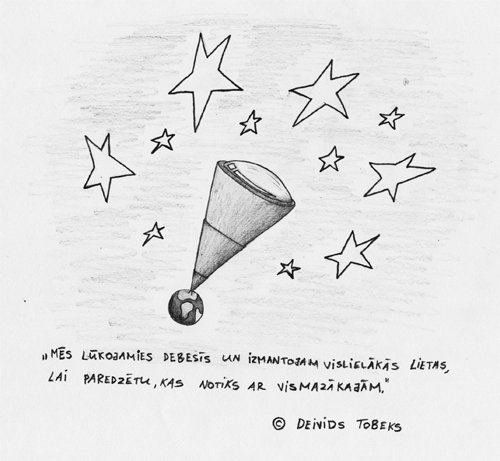 „MĒS LŪKOJAMIES DEBESĪS UN IZMANTOJAM VISLIELĀKĀS LIETAS,
LAI PAREDZĒTU, KAS NOTIKS AR VISMAZĀKAJĀM."
© DEIVIDS TOBEKS